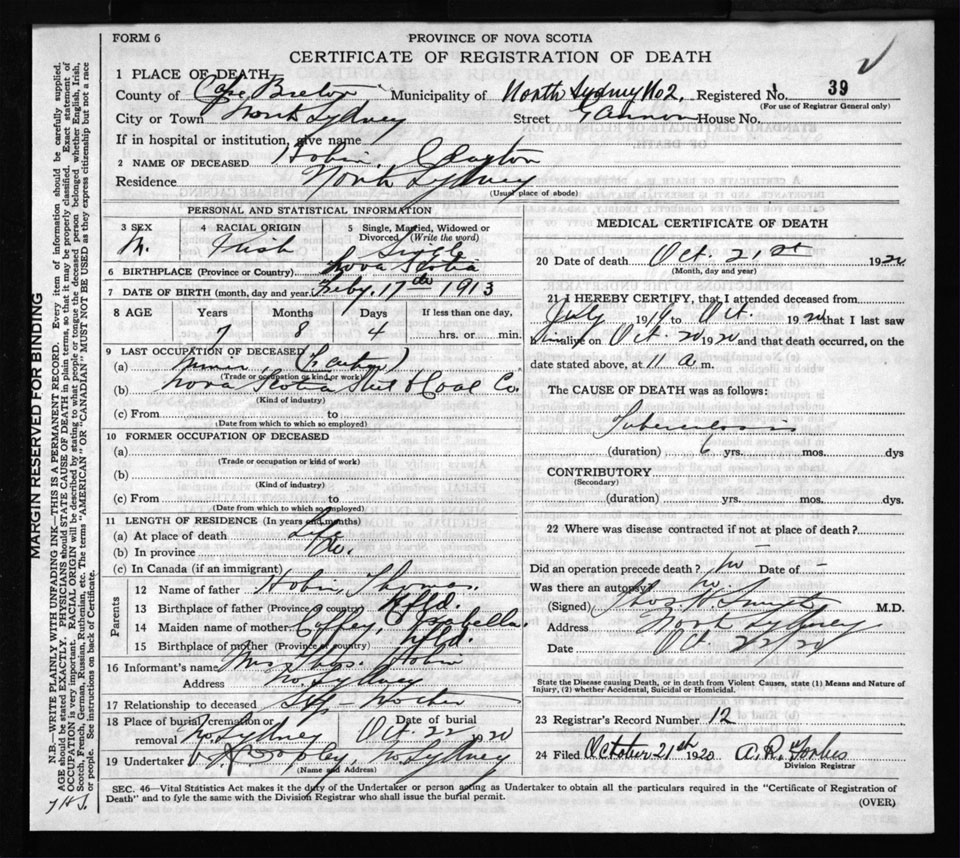 FORM 6
PROVINCE OF NOVA SCOTIA
CERTIFICATE OF REGISTRATION OF DEATH
1 PLACE OF DEATH
County of Cape Breton Municipality of North Sydney No 2. Registered No. 39
(For use of Registrar General only)
City or Town North Sydney Street Gannon House No.
If in hospital or institution, give name
2 NAME OF DECEASED Hobin, Clayton
Residence North Sydney
(Usual place of abode)
PERSONAL AND STATISTICAL INFORMATION
3 SEX M.
4 RACIAL ORIGIN Irish
5 Single, Married, Widowed or Divorced (Write the word) Single
6 BIRTHPLACE (Province or Country) Nova Scotia
7 DATE OF BIRTH (month, day and year) Feby. 17th 1913
8 AGE Years Months Days If less than one day,
7 8 4 hrs. or min.
9 LAST OCCUPATION OF DECEASED
(a)
(Trade or occupation or kind of work)
(b) Nova Scotia Steel & Coal Co.
(Kind of industry)
(c) From to
(Date from which to which so employed)
10 FORMER OCCUPATION OF DECEASED
(a)
(Trade or occupation or kind of work)
(b)
(Kind of industry)
(c) From to
(Date from which to which so employed)
11 LENGTH OF RESIDENCE (In years and months)
(a) At place of death Life
(b) In province Do.
(c) In Canada (if an immigrant)
Parents
12 Name of father Hobin, Thomas.
13 Birthplace of father (Province or country) Nfld.
14 Maiden name of mother Coffey, Isabella.
15 Birthplace of mother (Province or country) Nfld.
16 Informant's name Mrs Thos. Hobin
Address No. Sydney
17 Relationship to deceased Step-Mother
18 Place of burial, cremation or removal No. Sydney Date of burial Oct 22 1920
19 Undertaker No Sydney
(Name and Address)
MEDICAL CERTIFICATE OF DEATH
20 Date of death Oct. 21st 1920
(Month, day and year)
21 I HEREBY CERTIFY, that I attended deceased from
July 1919 to Oct. 1920 that I last saw
him alive on Oct 20 1920 and that death occurred, on the
date stated above, at 11 a. m.
The CAUSE OF DEATH was as follows:
Tuberculosis
(duration) 6 yrs. mos. dys
CONTRIBUTORY
(Secondary)
(duration) yrs. mos. dys.
22 Where was disease contracted if not at place of death?
Did an operation precede death? no Date of -
Was there an autopsy? no.
(Signed) M.D.
Address North Sydney
Date Oct. 22/20
State the Disease causing Death, or in death from Violent Causes, state (1) Means and Nature of
Injury, (2) whether Accidental, Suicidal or Homicidal.
23 Registrar's Record Number 12
24 Filed October 21st 1920 A. R. Forbes
Division Registrar
SEC. 46—Vital Statistics Act makes it the duty of the Undertaker or person acting as Undertaker to obtain all the particulars required in the "Certificate of Registration of
Death" and to fyle the same with the Division Registrar who shall issue the burial permit.
(OVER)
MARGIN RESERVED FOR BINDING
N.B.—WRITE PLAINLY WITH UNFADING INK—THIS IS A PERMANENT RECORD. Every item of information should be carefully supplied.
AGE should be stated EXACTLY. PHYSICIANS should STATE CAUSE OF DEATH in plain terms, so that it may be properly classified. Exact statement of
OCCUPATION is very important. RACIAL ORIGIN will be described by stating to what people or tongue the deceased person belonged whether English, Irish,
Scotch, French, German, Russian, Ruthenian, etc. The terms "AMERICAN" or "CANADIAN" MUST NOT BE USED as they express citizenship but not a race
or people. See instructions on back of Certificate.